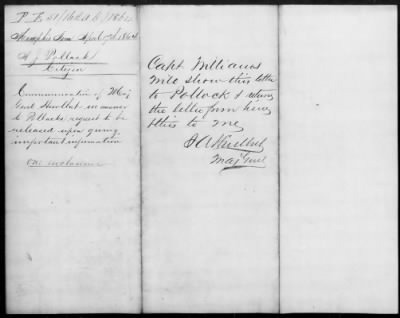 Memphis Ten April 1864
A J Pollack
Citizen
Communication of Maj
Genl Hurlbut in answer
to Pollacks request to be
released upon giving
important information
One inclosure
Capt Williams
will show this letter
to Pollock & return
the letter from him
& this to me
S A Hurlbut
Maj Genl